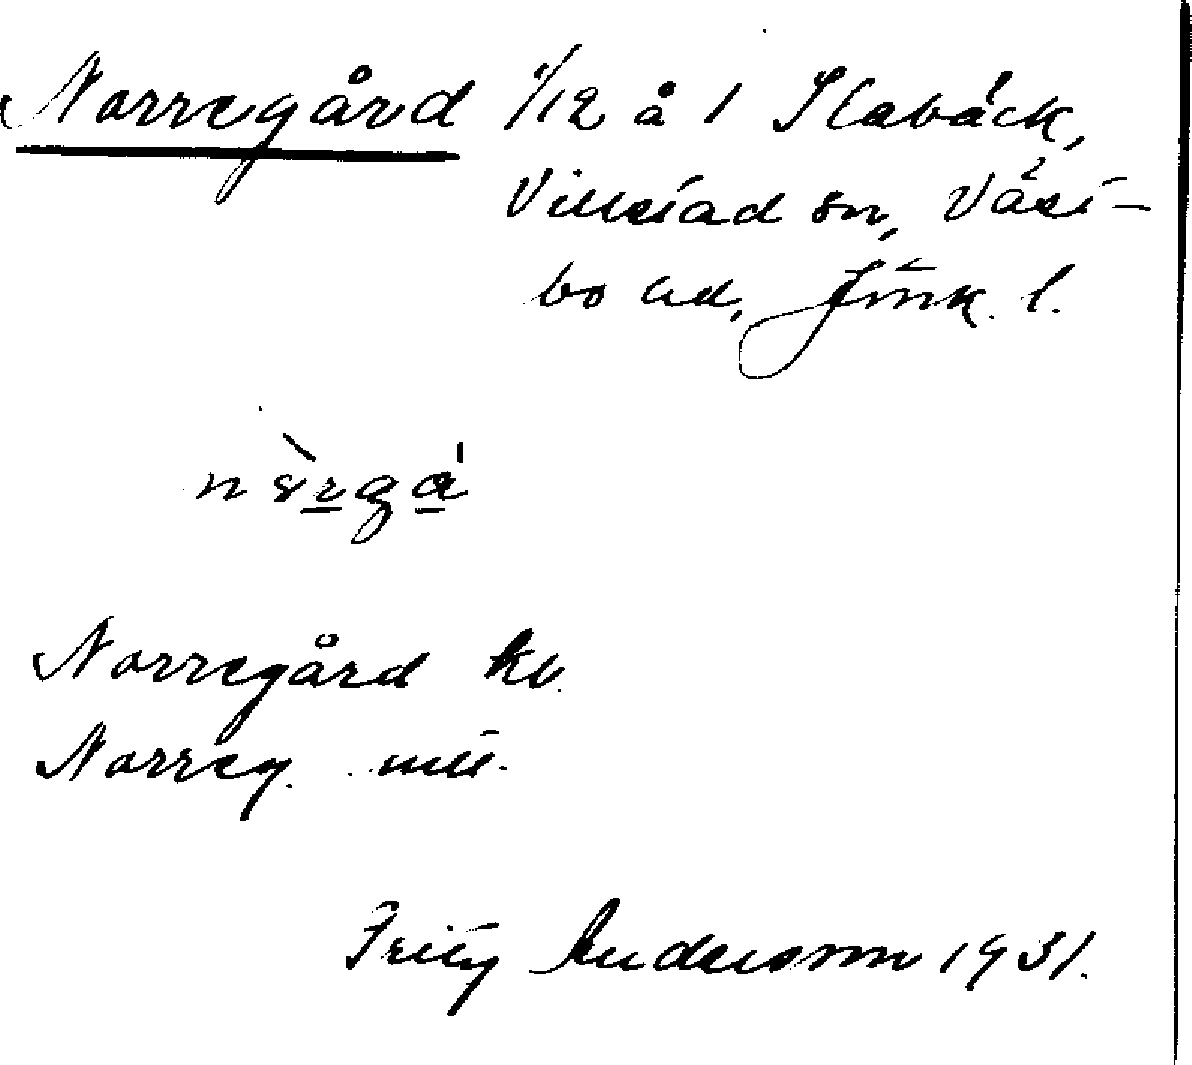 Norregård 1/12 å 1 Slabäck,
Villstad sn, Väst-
bo hd, Jönk. l.
nɵ̀rgá
Norregård kb.
Norreg.
Fritz Andersson 1931.